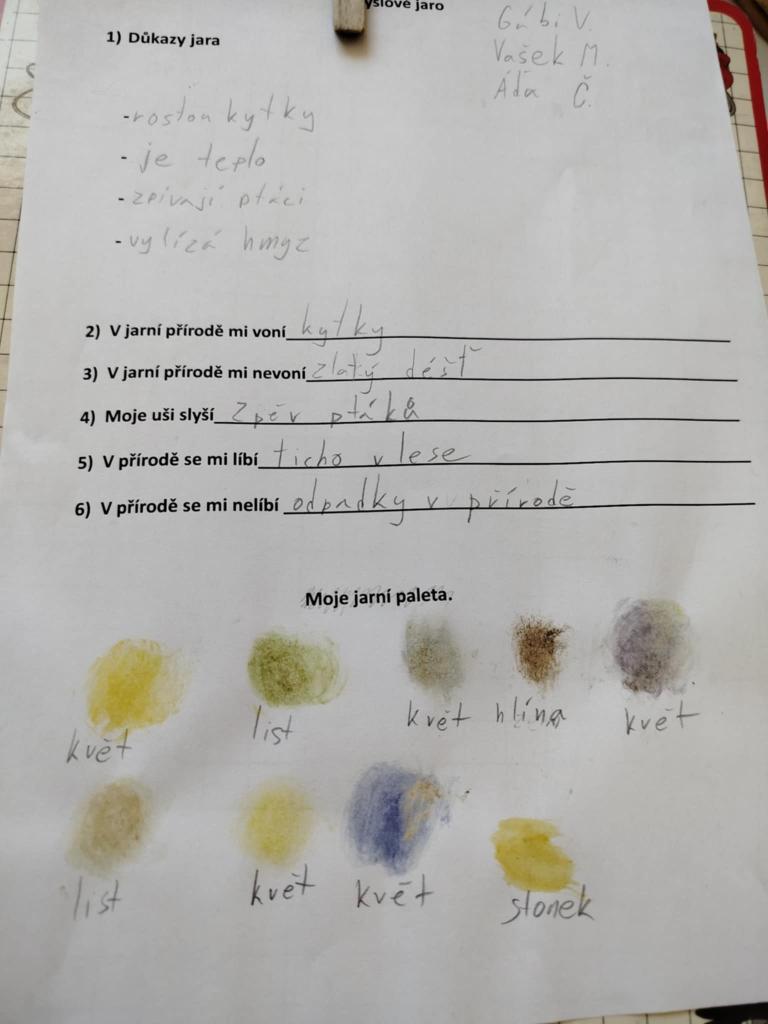 yslové jaro
Gábi V.
Vašek M.
Áďa Č.
1) Důkazy jara
-rostou kytky
- je teplo
- zpívají ptáci
- vylízá hmyz
2) V jarní přírodě mi voní kytky
3) V jarní přírodě mi nevoní zlatý déšť
4) Moje uši slyší zpěv ptáků
5) V přírodě se mi líbí ticho v lese
6) V přírodě se mi nelíbí odpadky v přírodě
Moje jarní paleta.
květ list květ hlína květ
list květ květ stonek